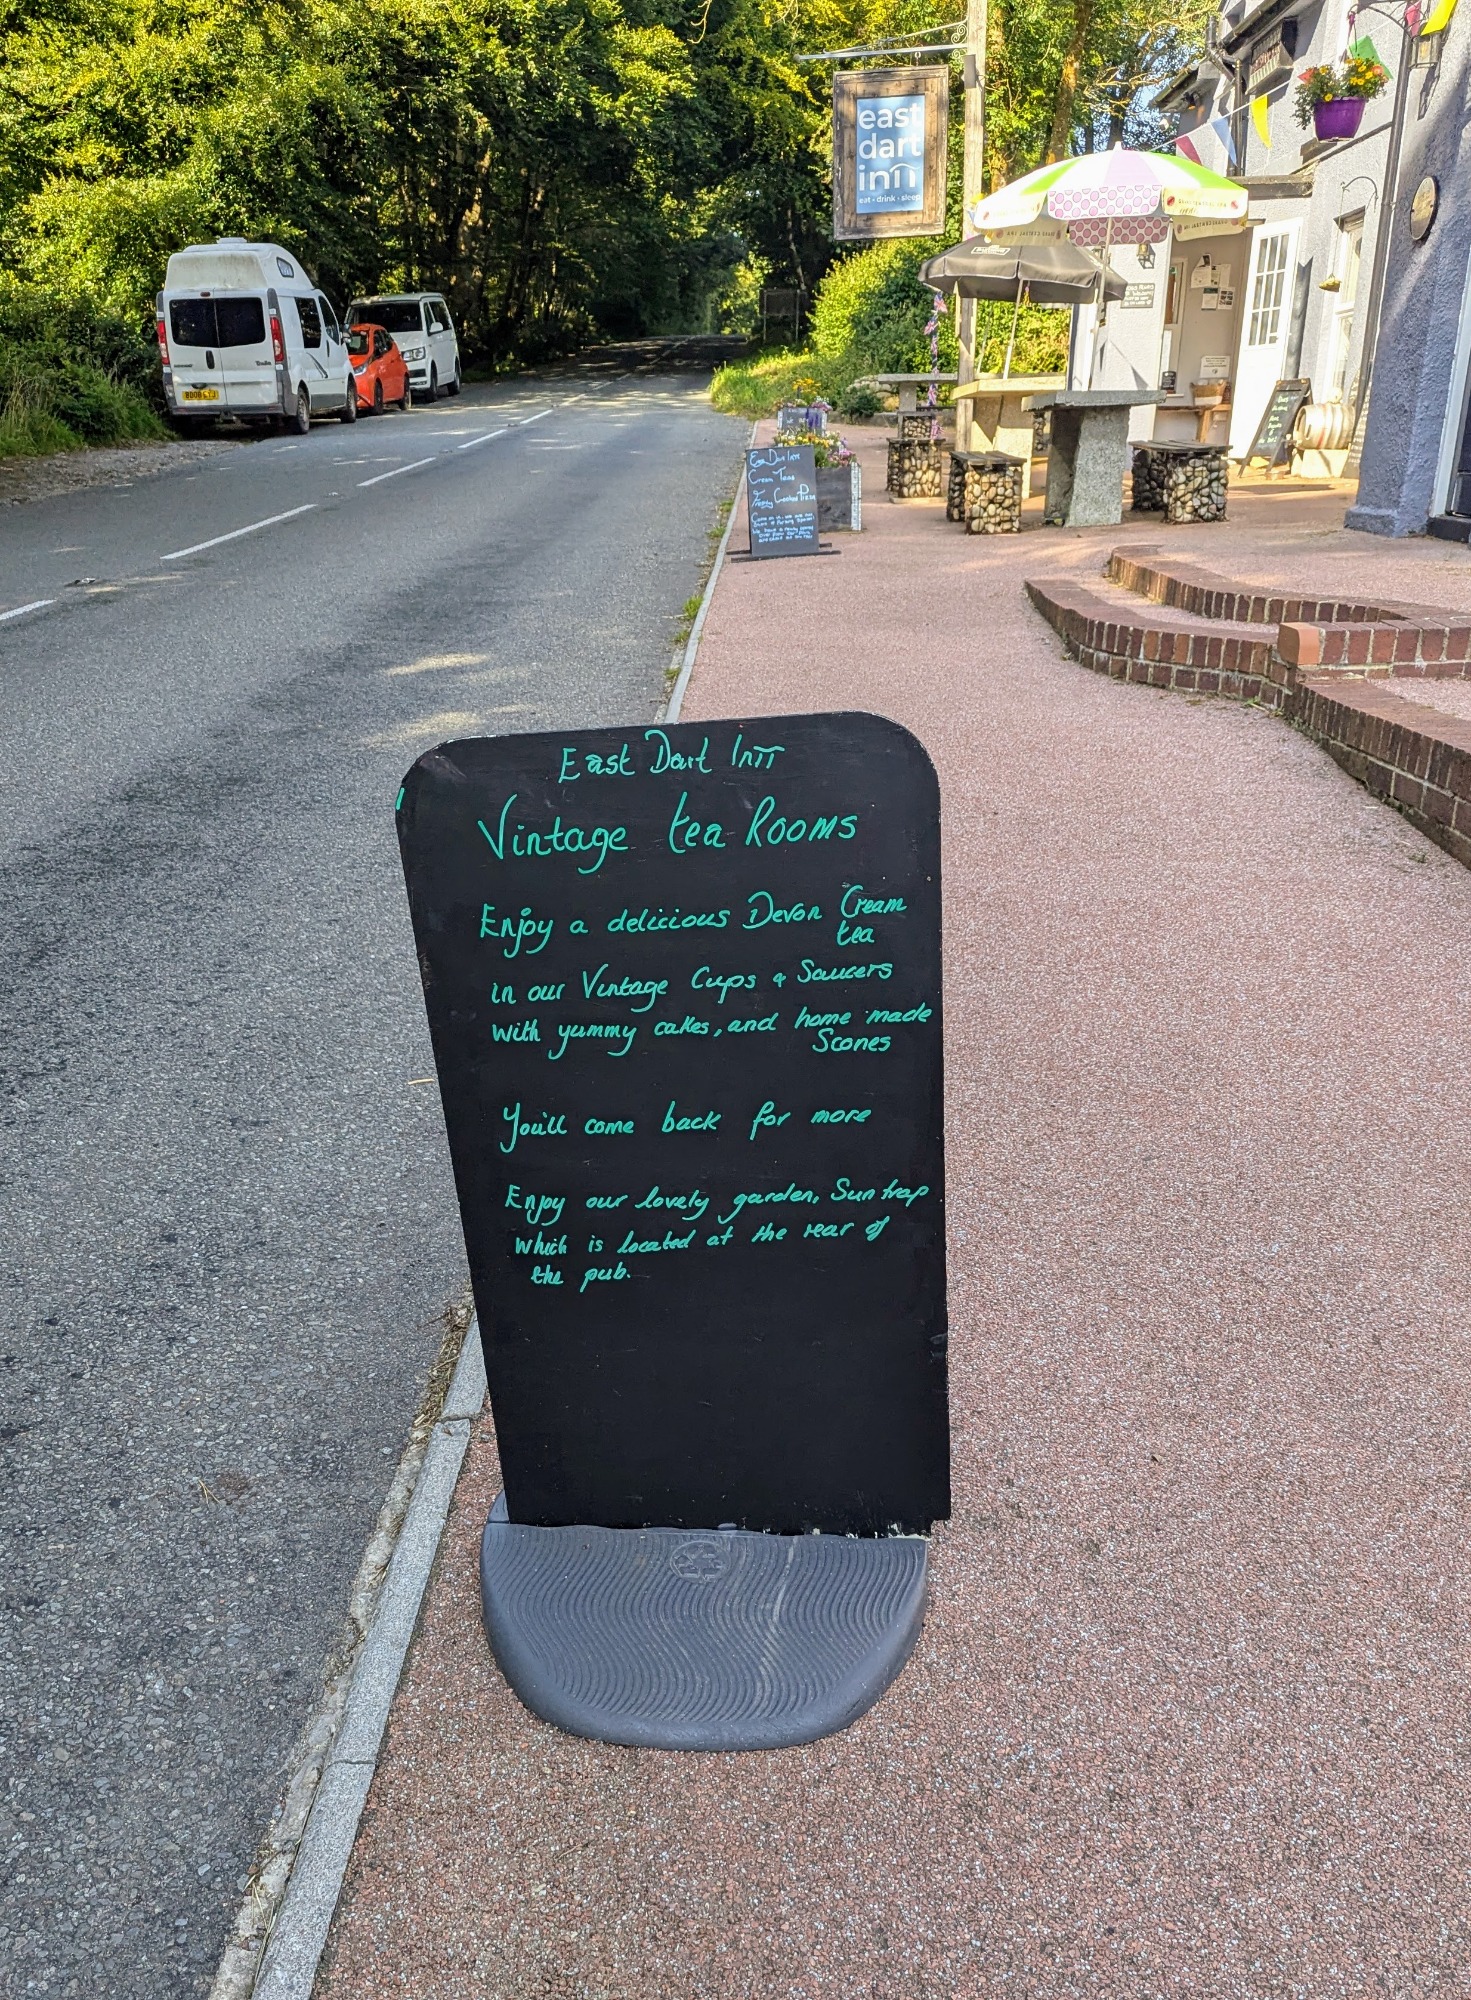 east
dart
inn
eat • drink • sleep
Trafic
East Dart Inn
Cream Teas
East Dart Inn
Vintage tea Rooms
Enjoy a delicious Devon Cream
tea
in our Vintage Cups & Saucers
with yummy cakes, and home made
Scones
You'll come back for more
Enjoy our lovely garden, Sun trap
which is located at the rear of
the pub.